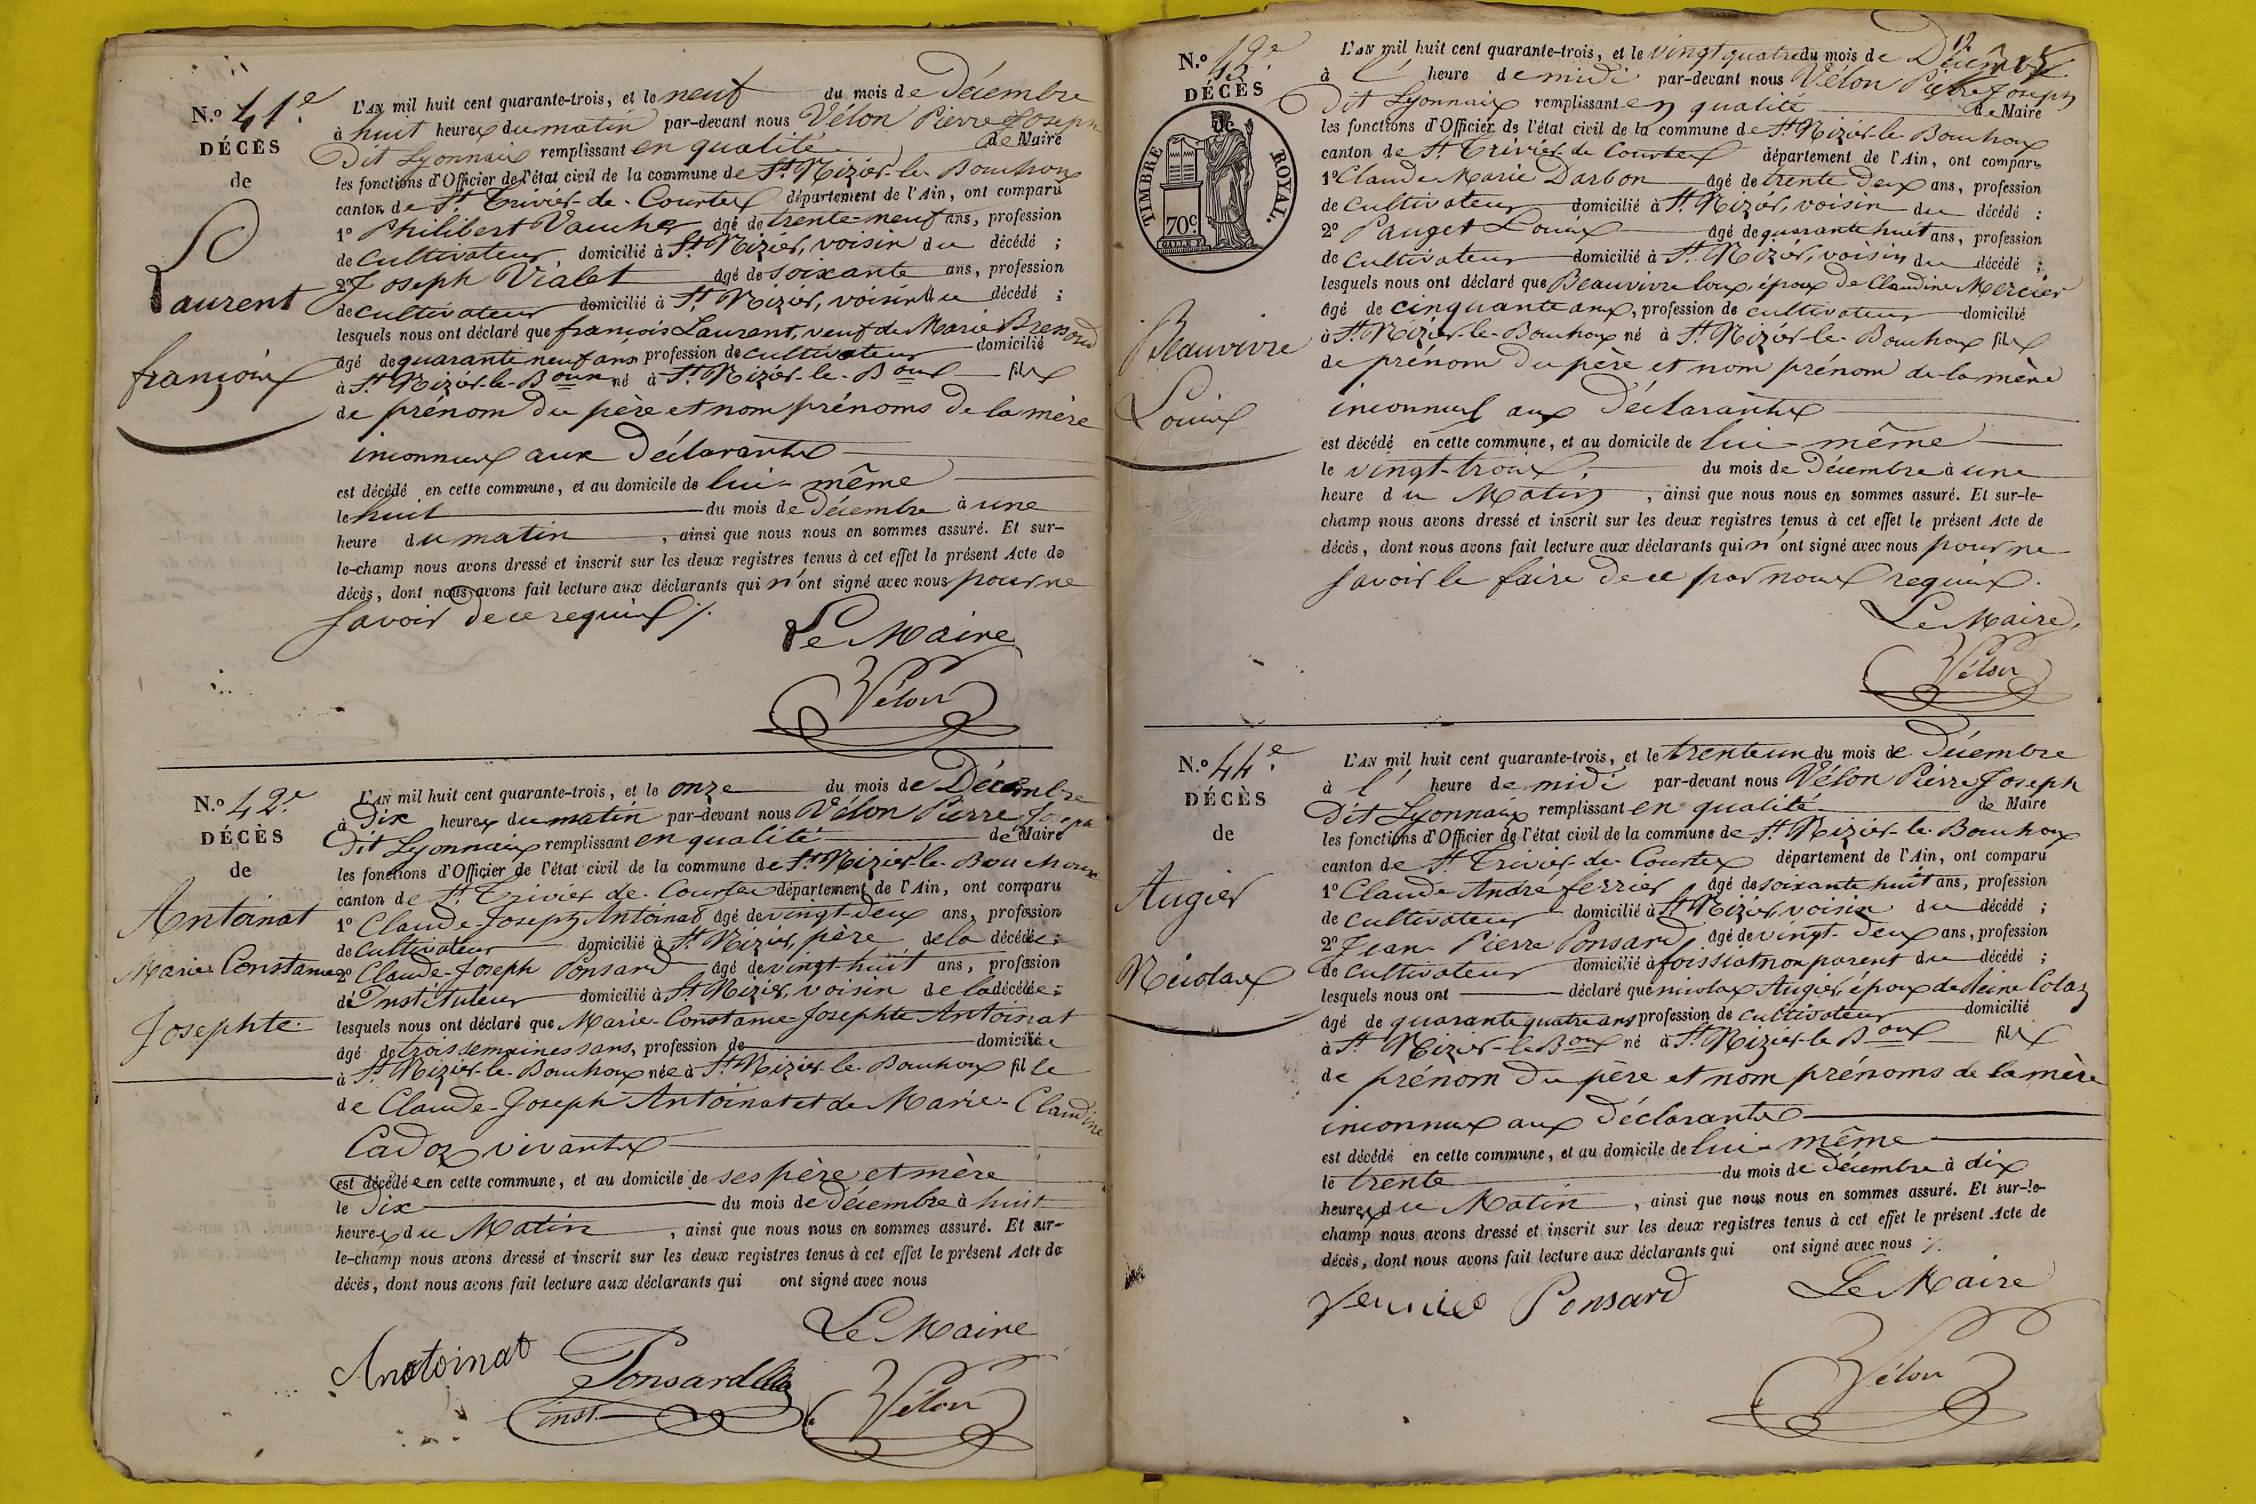 N.º 41e
DÉCÈS
de
Laurent
françois
L'AN mil huit cent quarante-trois, et le neuf du mois de Décembre
à huit heures du matin par-devant nous Vélon Pierre Joseph
Dit Lyonnais remplissant en qualité de Maire
les fonctions d'Officier de l'état civil de la commune de St Nizier-le-Bouchoux
canton de St Trivier-de-Courtes département de l'Ain, ont comparu
1º Philibert Vaucher âgé de trente-neuf ans, profession
de Cultivateur, domicilié à St Nizier, voisin du décédé ;
2º Joseph Vialet âgé de soixante ans, profession
de cultivateur domicilié à St Nizier, voisin du décédé ;
lesquels nous ont déclaré que françois Laurent, veuf de Marie
âgé de quarante neuf ans profession de cultivateur domicilié
à St Nizier-le-Boux né à St Nizier-le-Boux fils
de prénom du père et nom prénoms de la mère
inconnus aux Déclarants
est décédé en cette commune, et au domicile de lui-même
le huit du mois de Décembre à une
heure du matin, ainsi que nous nous en sommes assuré. Et sur-
le-champ nous avons dressé et inscrit sur les deux registres tenus à cet effet le présent Acte de
décès, dont nous avons fait lecture aux déclarants qui n'ont signé avec nous pour ne
savoir de ce requis /.
Le Maire
Vélon
N.º 42e
DÉCÈS
de
Antoinat
Marie Constance
Josephte
L'AN mil huit cent quarante-trois, et le onze du mois de Décembre
à Dix heures du matin par-devant nous Vélon Pierre Joseph
Dit Lyonnais remplissant en qualité de Maire
les fonctions d'Officier de l'état civil de la commune de St Nizier-le-Bouchoux
canton de St Trivier-de-Courtes département de l'Ain, ont comparu
1º Claude Joseph Antoinat âgé de vingt-deux ans, profession
de cultivateur domicilié à St Nizier, père de la décédée ;
2º Claude-Joseph Ponsard âgé de vingt-huit ans, profession
de Instituteur domicilié à St Nizier, voisin de la décédée ;
lesquels nous ont déclaré que Marie-Constance-Josephte Antoinat
âgé de trois semaines ans, profession de domiciliée
à St Nizier-le-Bouchoux née à St Nizier-le-Bouchoux fille
de Claude-Joseph Antoinat et de Marie-Claudine
Cadoz vivants
est décédée en cette commune, et au domicile de ses père et mère
le Dix du mois de Décembre à huit
heures du Matin, ainsi que nous nous en sommes assuré. Et sur-
le-champ nous avons dressé et inscrit sur les deux registres tenus à cet effet le présent Acte de
décès, dont nous avons fait lecture aux déclarants qui ont signé avec nous
Le Maire
Antoinat Ponsard
inst. Vélon
N.º
DÉCÈS
de
TIMBRE ROYAL.
70c
Beauvivre
Louis
L'AN mil huit cent quarante-trois, et le vingt quatre du mois de Décembre
à l' heure de midi par-devant nous Vélon Pierre Joseph
Dit Lyonnais remplissant en qualité de Maire
les fonctions d'Officier de l'état civil de la commune de St Nizier-le-Bouchoux
canton de St Trivier-de-Courtes département de l'Ain, ont comparu
1º Claude Marie Darbon âgé de trente deux ans, profession
de cultivateur domicilié à St Nizier, voisin du décédé ;
2º Pauget Louis âgé de quarante huit ans, profession
de cultivateur domicilié à St Nizier, voisin du décédé ;
lesquels nous ont déclaré que Beauvivre époux de Claudine Mercier
âgé de cinquante ans, profession de cultivateur domicilié
à St Nizier-le-Bouchoux né à St Nizier-le-Bouchoux fils
de prénom du père et nom prénom de la mère
inconnus aux Déclarants
est décédé en cette commune, et au domicile de lui-même
le vingt-trois, du mois de Décembre à une
heure du Matin, ainsi que nous nous en sommes assuré. Et sur-le-
champ nous avons dressé et inscrit sur les deux registres tenus à cet effet le présent Acte de
décès, dont nous avons fait lecture aux déclarants qui n'ont signé avec nous pour ne
savoir le faire de ce par nous requis.
Le Maire,
Vélon
N.º 44e
DÉCÈS
de
Augier
Nicolas
L'AN mil huit cent quarante-trois, et le trente un du mois de Décembre
à l' heure de midi par-devant nous Vélon Pierre Joseph
Dit Lyonnais remplissant en qualité de Maire
les fonctions d'Officier de l'état civil de la commune de St Nizier-le-Bouchoux
canton de St Trivier-de-Courtes département de l'Ain, ont comparu
1º Claude André ferrier âgé de soixante huit ans, profession
de cultivateur domicilié à St Nizier, voisin du décédé ;
2º Jean-Pierre Ponsard, âgé de vingt-deux ans, profession
de cultivateur domicilié à foissiat non parent du décédé ;
lesquels nous ont déclaré que nicolas Augier, époux de
âgé de quarante quatre ans profession de cultivateur domicilié
à St Nizier-le-Boux né à St Nizier-le-Boux fils
de prénom du père et nom prénoms de la mère
inconnus aux Déclarants
est décédé en cette commune, et au domicile de lui-même
le trente du mois de Décembre à dix
heures du Matin, ainsi que nous nous en sommes assuré. Et sur-le-
champ nous avons dressé et inscrit sur les deux registres tenus à cet effet le présent Acte de
décès, dont nous avons fait lecture aux déclarants qui ont signé avec nous /.
Ponsard Le Maire
Vélon